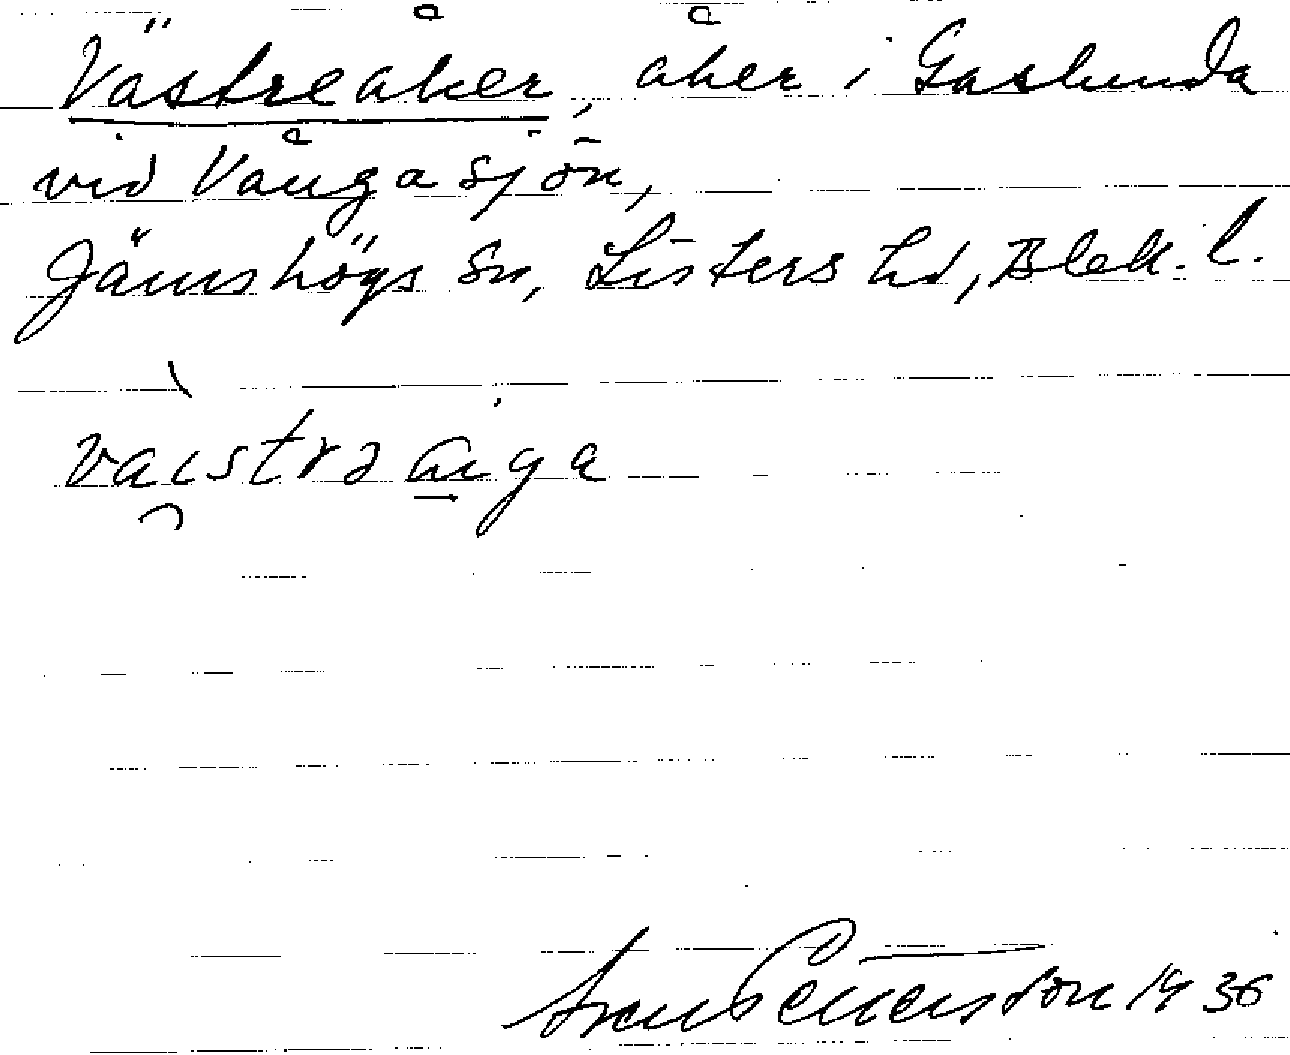 Västreåker, åker i Gaslunda
vid Vångasjön,
Jämshögs sn, Listers hd, Blek. l.
vaistrə aiga
Sven Petersson 1936